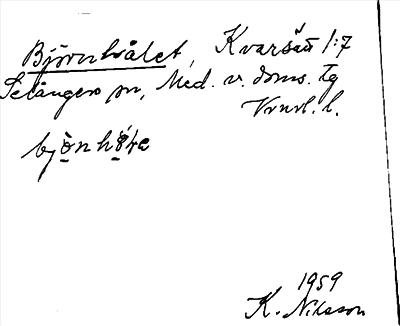 Björnhålet, Kvarsätt 1:7
Selångers sn, Med. v. doms. tg
Vnrl. l.
bjò̱nhó̱ḷe
1959
K. Nilsson